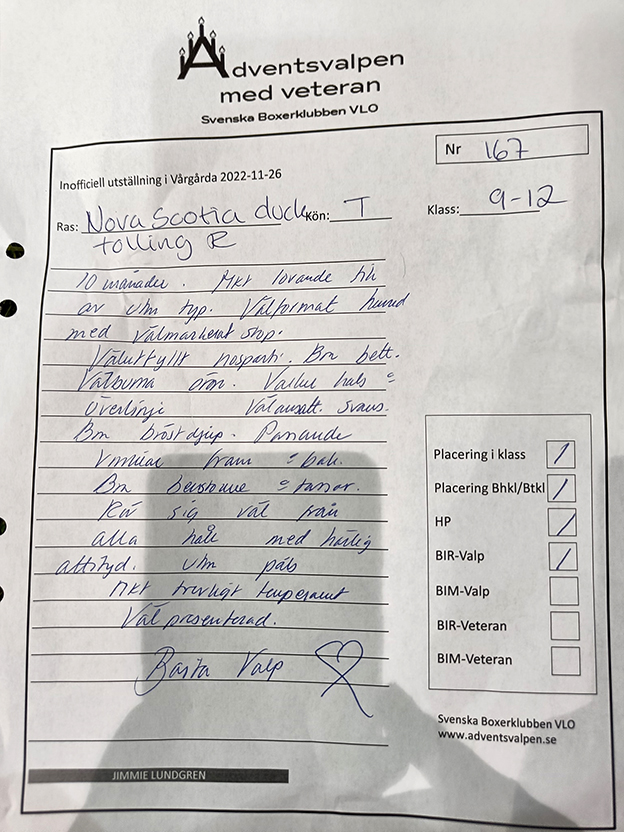 Adventsvalpen
med veteran
Svenska Boxerklubben VLO
Nr 167
Inofficiell utställning i Vårgårda 2022-11-26
Ras: Nova Scotia duck Kön: T Klass: 9-12
tolling R
10 månader. Mkt lovande tik
av utm typ. Välformat huvud
med välmarkerat stop.
Välutfyllt nosparti. Bra bett.
Välburna öron. Vacker hals o
överlinje Välansatt. svans.
Bra bröstdjup. Passande
vinklar fram o bak.
Bra benstomme o tassar.
Rör sig väl från
alla håll med härlig
attityd. utm päls
Mkt trevligt temperament
Väl presenterad.
Bästa Valp
Placering i klass 1
Placering Bhkl/Btkl 1
HP /
BIR-Valp /
BIM-Valp
BIR-Veteran
BIM-Veteran
Svenska Boxerklubben VLO
www.adventsvalpen.se
JIMMIE LUNDGREN